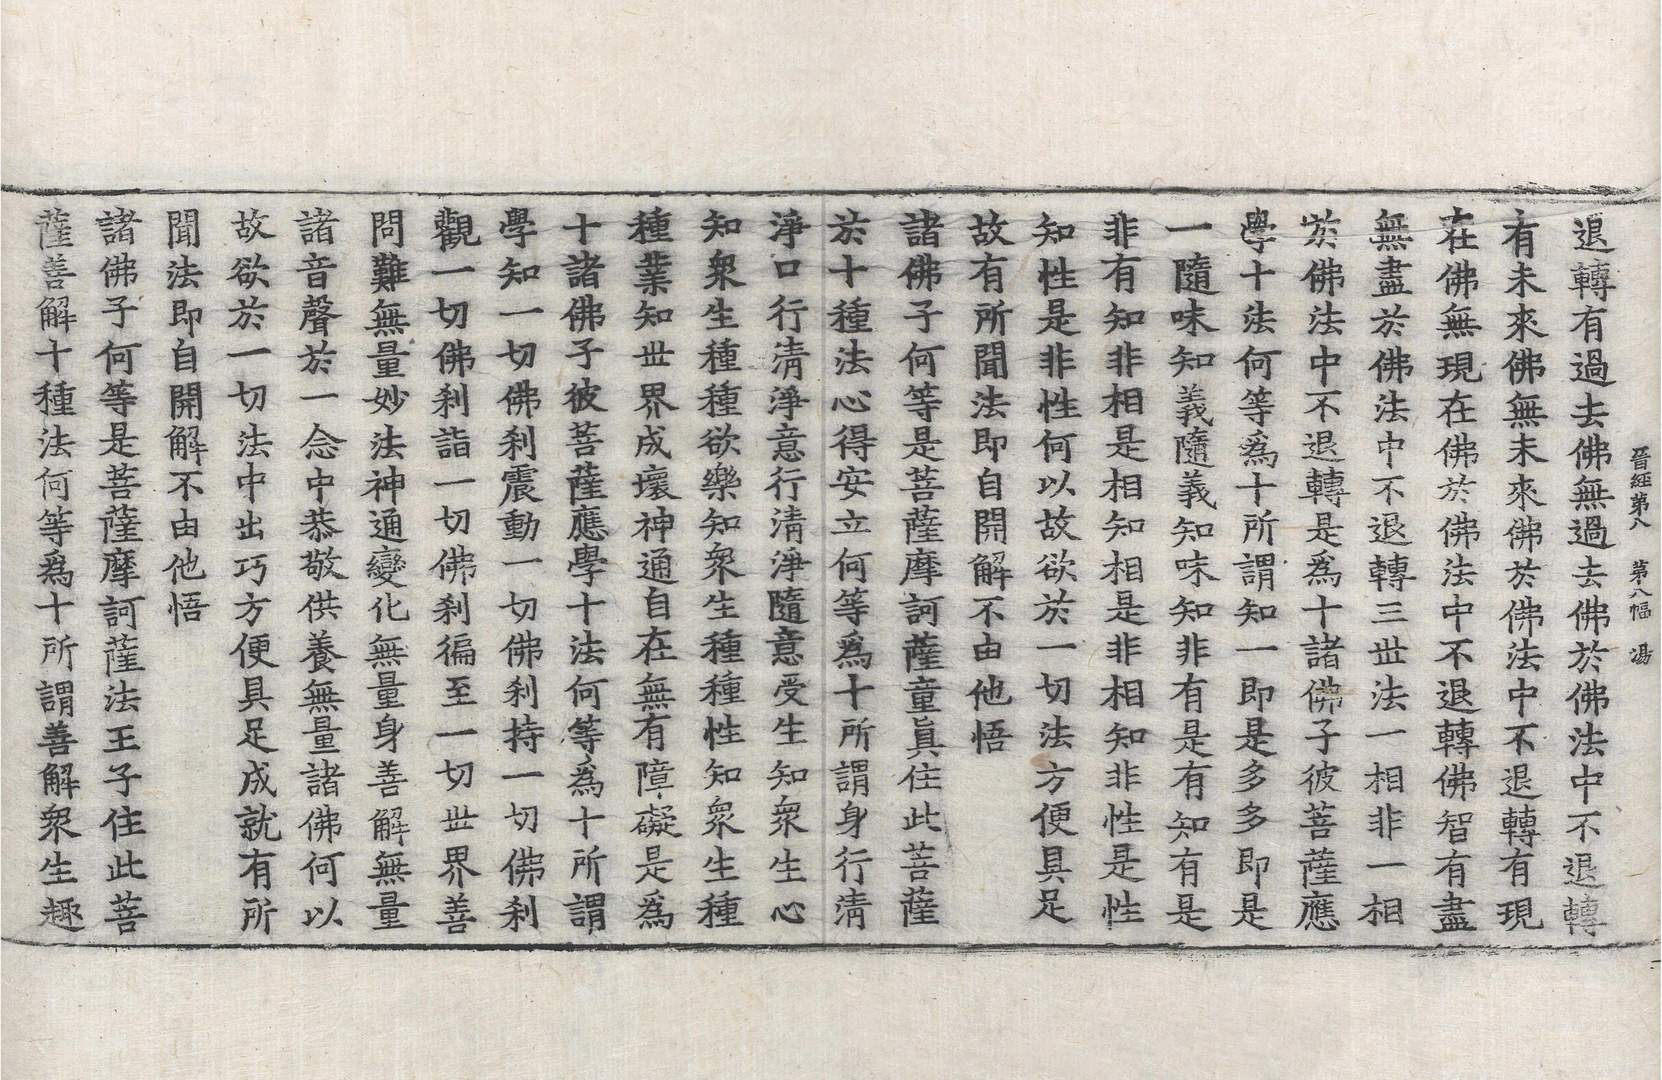 晉經第八 第八幅 湯
退轉有過去佛無過去佛於佛法中不退轉
有未來佛無未來佛於佛法中不退轉有現
在佛無現在佛於佛法中不退轉佛智有盡
無盡於佛法中不退轉三世法一相非一相
於佛法中不退轉是爲十諸佛子彼菩薩應
學十法何等爲十所謂知一即是多多即是
一隨味知義隨義知味知非有是有知有是
非有知非相是相知相是非相知非性是性
知性是非性何以故欲於一切法方便具足
故有所聞法即自開解不由他悟
諸佛子何等是菩薩摩訶薩童眞住此菩薩
於十種法心得安立何等爲十所謂身行清
淨口行清淨意行清淨隨意受生知衆生心
知衆生種種欲樂知衆生種種性知衆生種
種業知世界成壞神通自在無有障礙是爲
十諸佛子彼菩薩應學十法何等爲十所謂
學知一切佛刹震動一切佛刹持一切佛刹
觀一切佛刹詣一切佛刹徧至一切世界善
問難無量妙法神通變化無量身善解無量
諸音聲於一念中恭敬供養無量諸佛何以
故欲於一切法中出巧方便具足成就有所
聞法即自開解不由他悟
諸佛子何等是菩薩摩訶薩法王子住此菩
薩善解十種法何等爲十所謂善解衆生趣